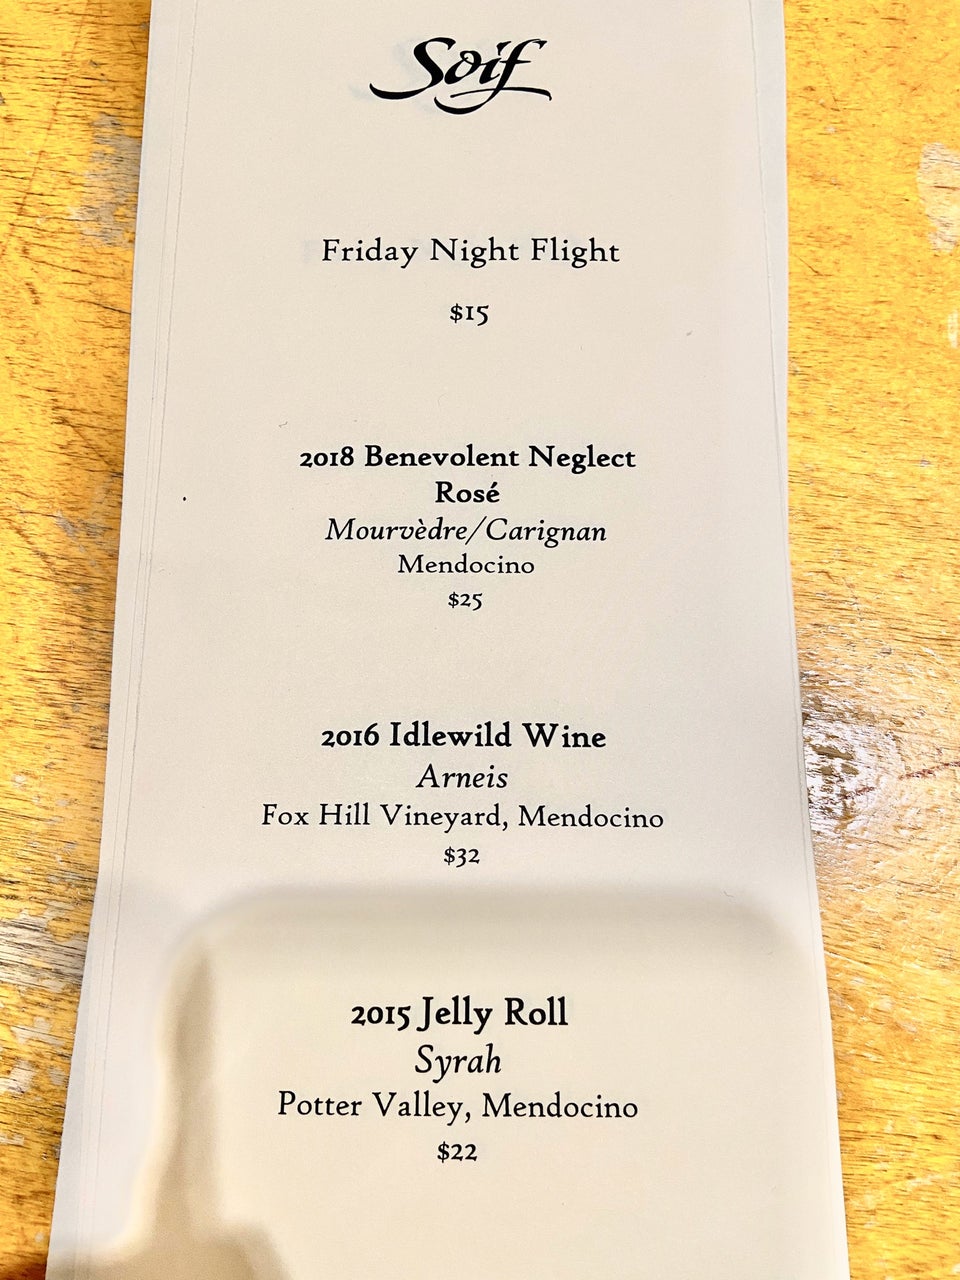 Soif
Friday Night Flight
$15
2018 Benevolent Neglect
Rosé
Mourvèdre/Carignan
Mendocino
$25
2016 Idlewild Wine
Arneis
Fox Hill Vineyard, Mendocino
$32
2015 Jelly Roll
Syrah
Potter Valley, Mendocino
$22